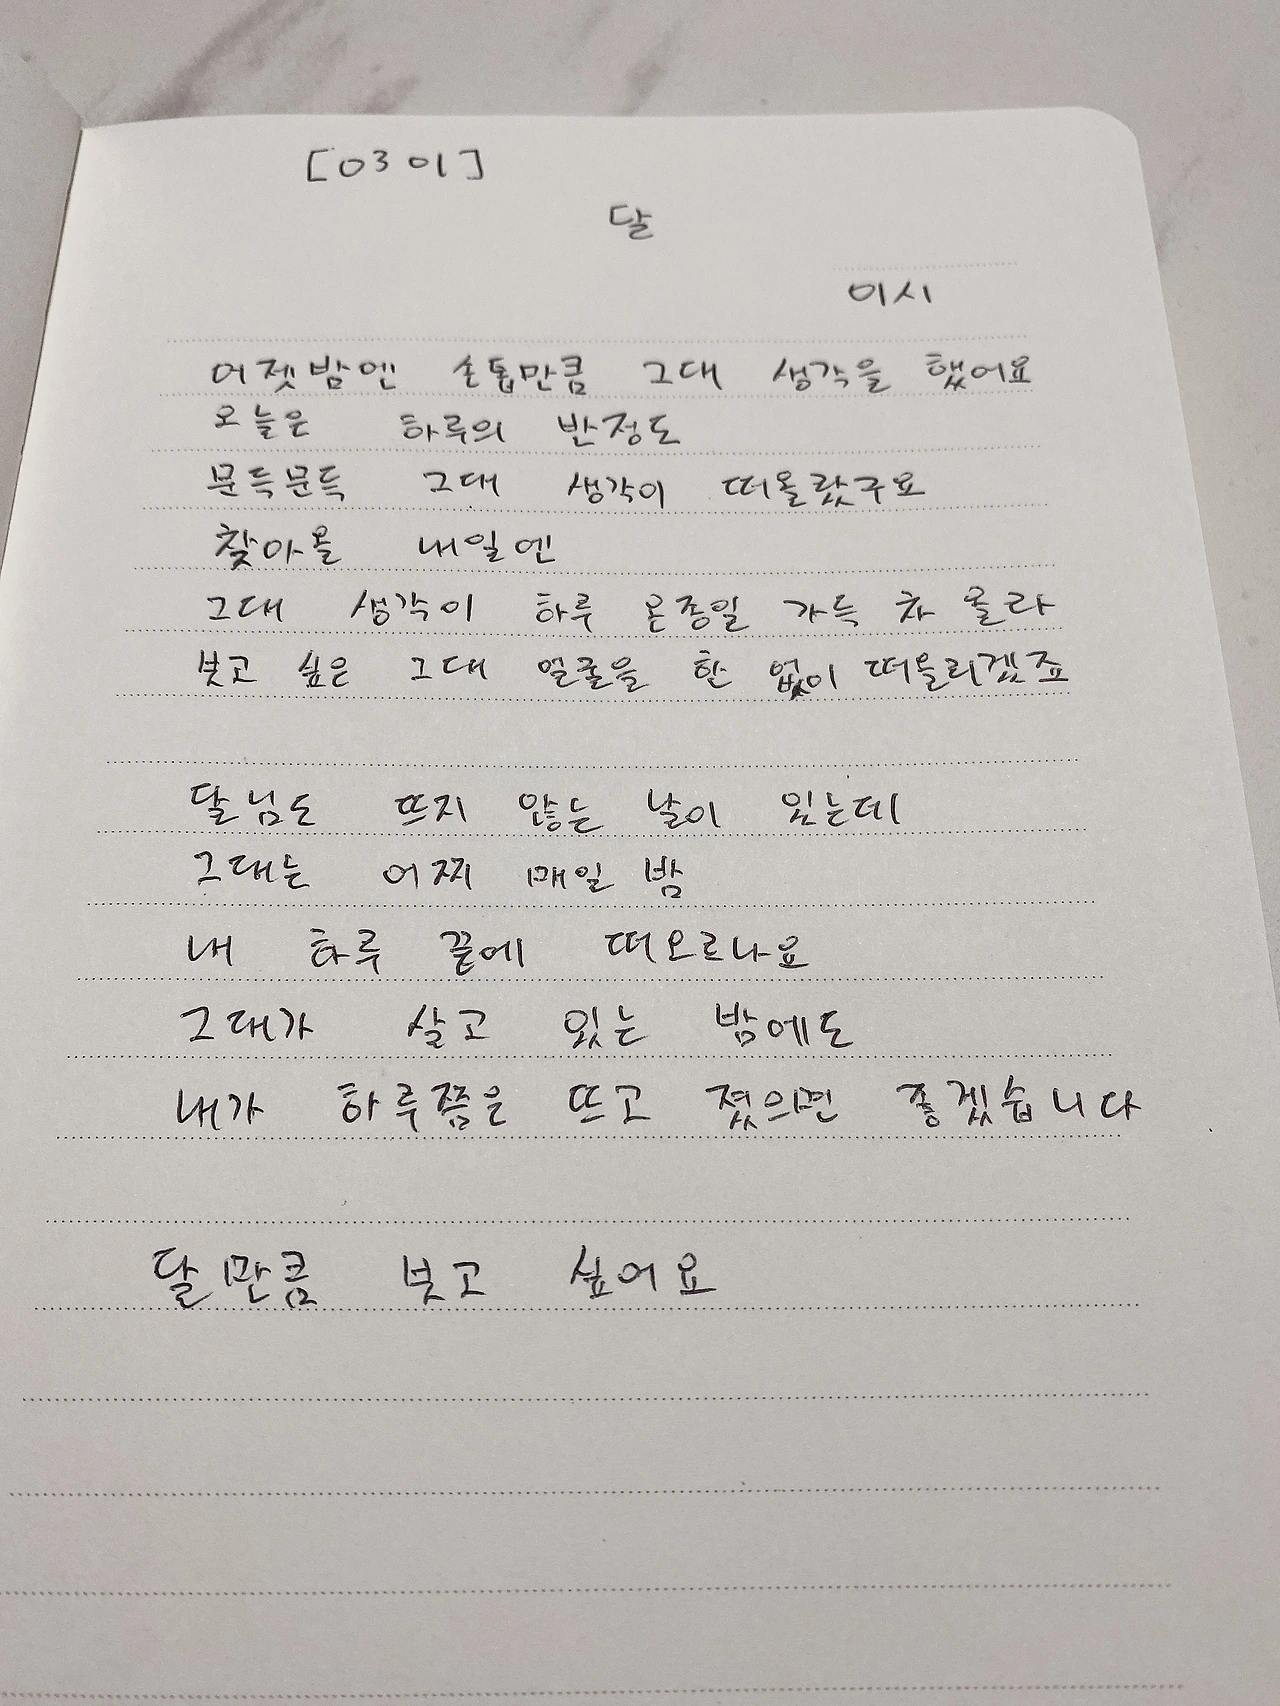 [0301]
달
이시
어젯밤엔 손톱만큼 그대 생각을 했어요
오늘은 하루의 반정도
문득문득 그대 생각이 떠올랐구요
찾아올 내일엔
그대 생각이 하루 온종일 가득 차 올라
보고 싶은 그대 얼굴을 한 없이 떠올리겠죠
달님도 뜨지 않는 날이 있는데
그대는 어찌 매일 밤
내 하루 끝에 떠오르나요
그대가 살고 있는 밤에도
내가 하루쯤은 뜨고 졌으면 좋겠습니다
달만큼 보고 싶어요